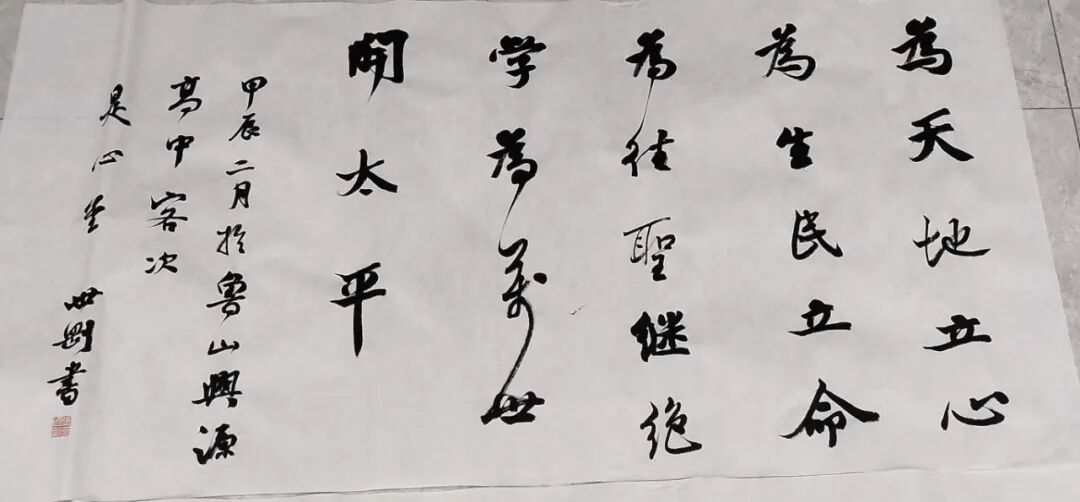 為天地立心
為生民立命
為往聖継绝
学為萬世
開太平
甲辰二月於魯山興源
高中客次
是心堂
世剛書